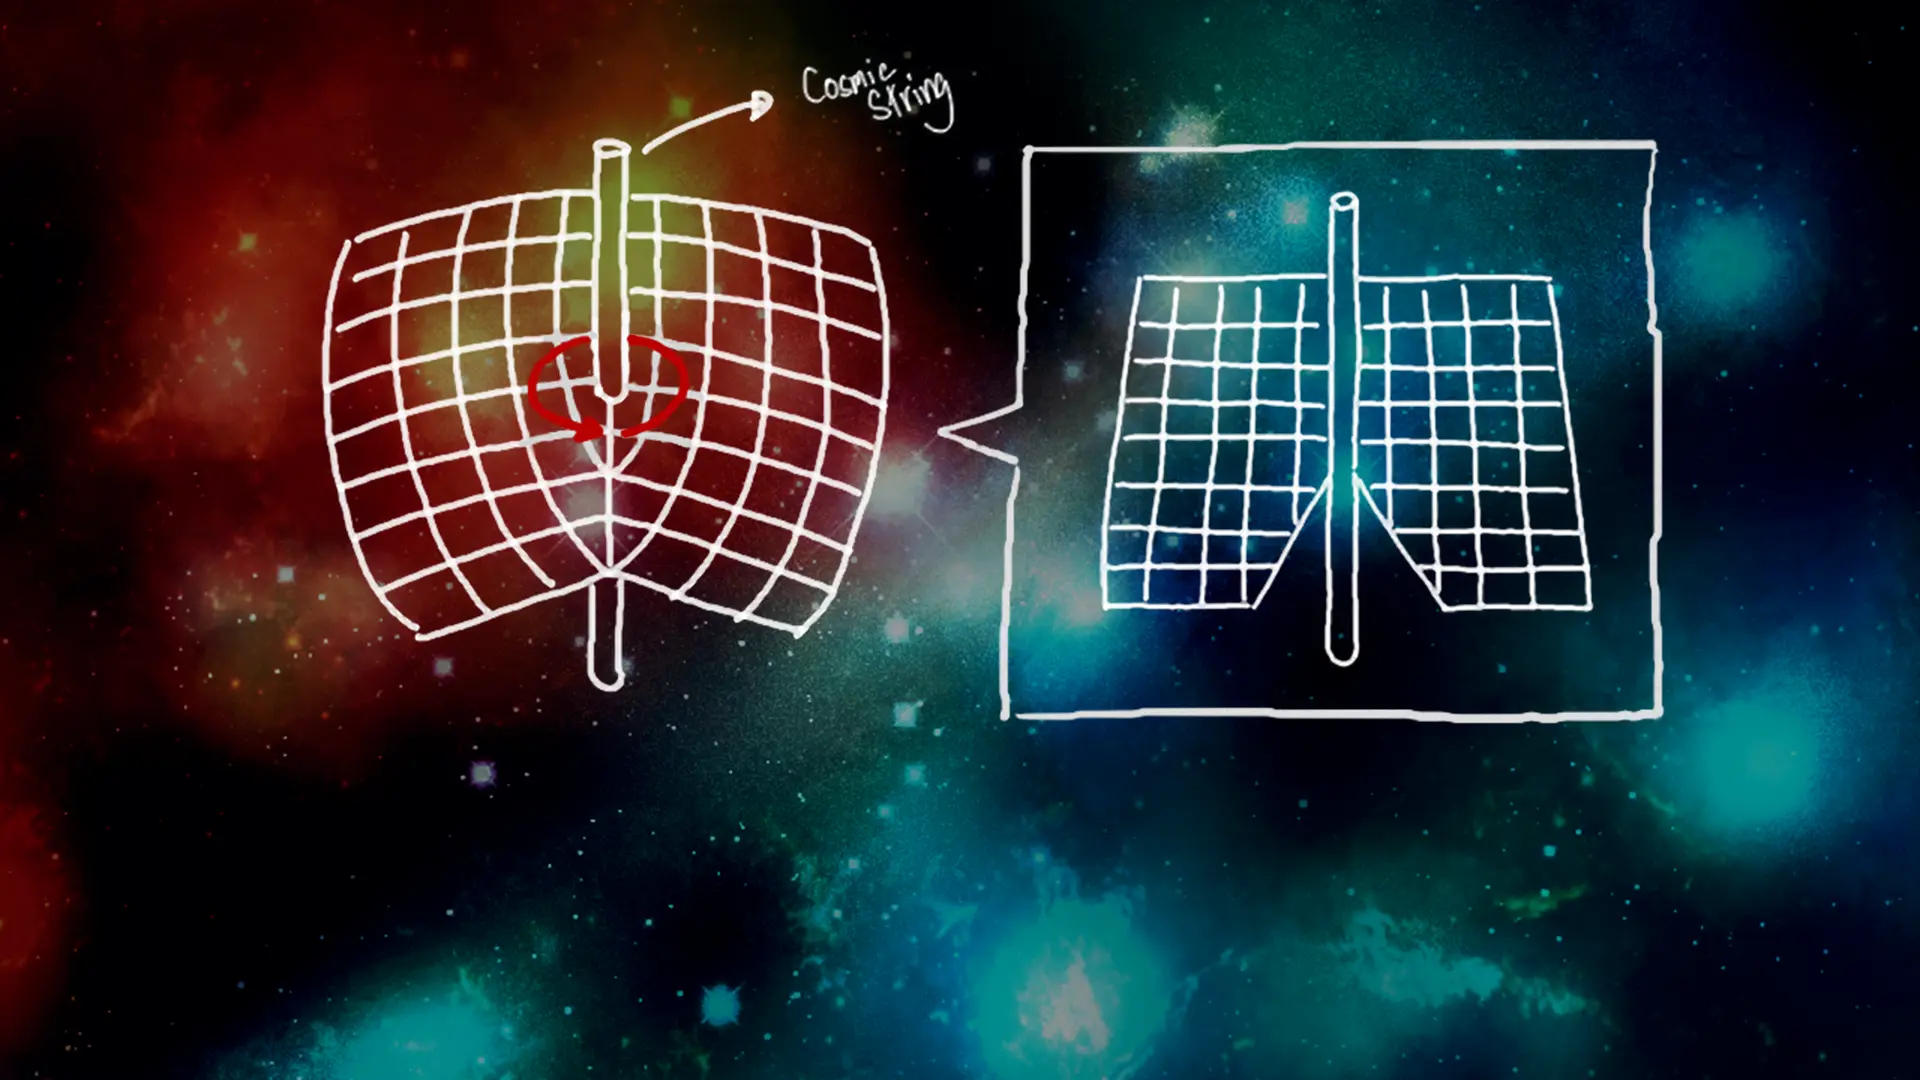 Cosmic
String